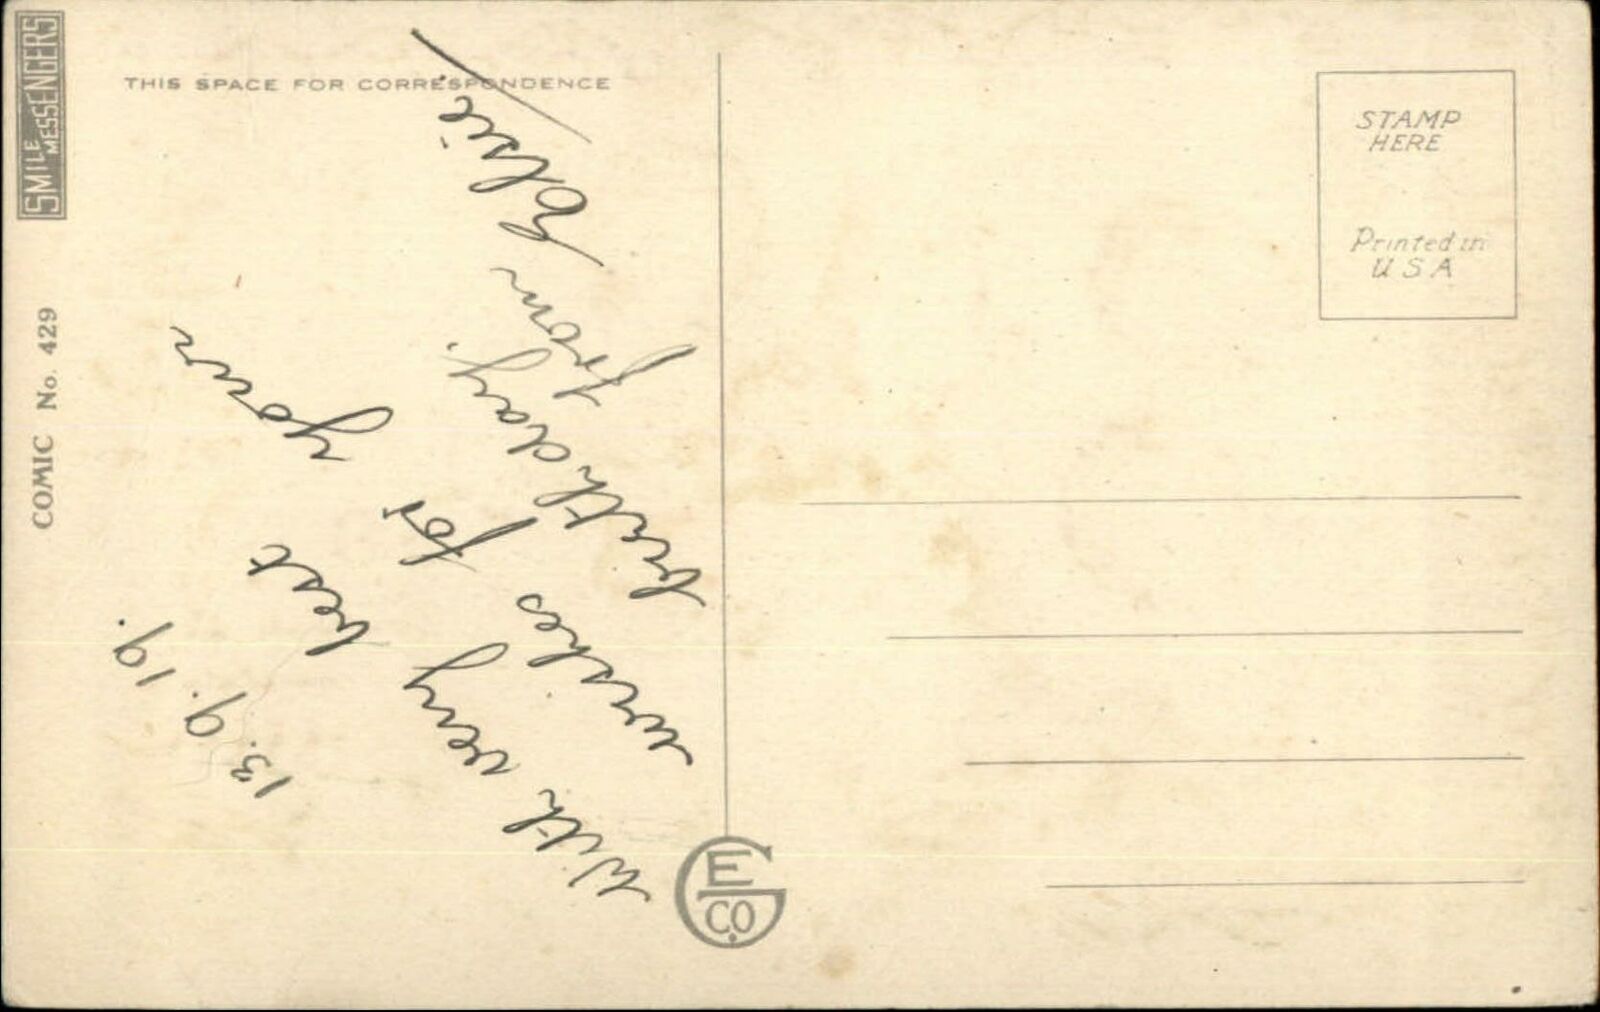 SMILE MESSENGERS
COMIC No. 429
THIS SPACE FOR CORRESPONDENCE
13. 9. 19.
With very best
wishes for your
birthday.
from Elsie
STAMP
HERE
Printed in
U S A
E G CO.